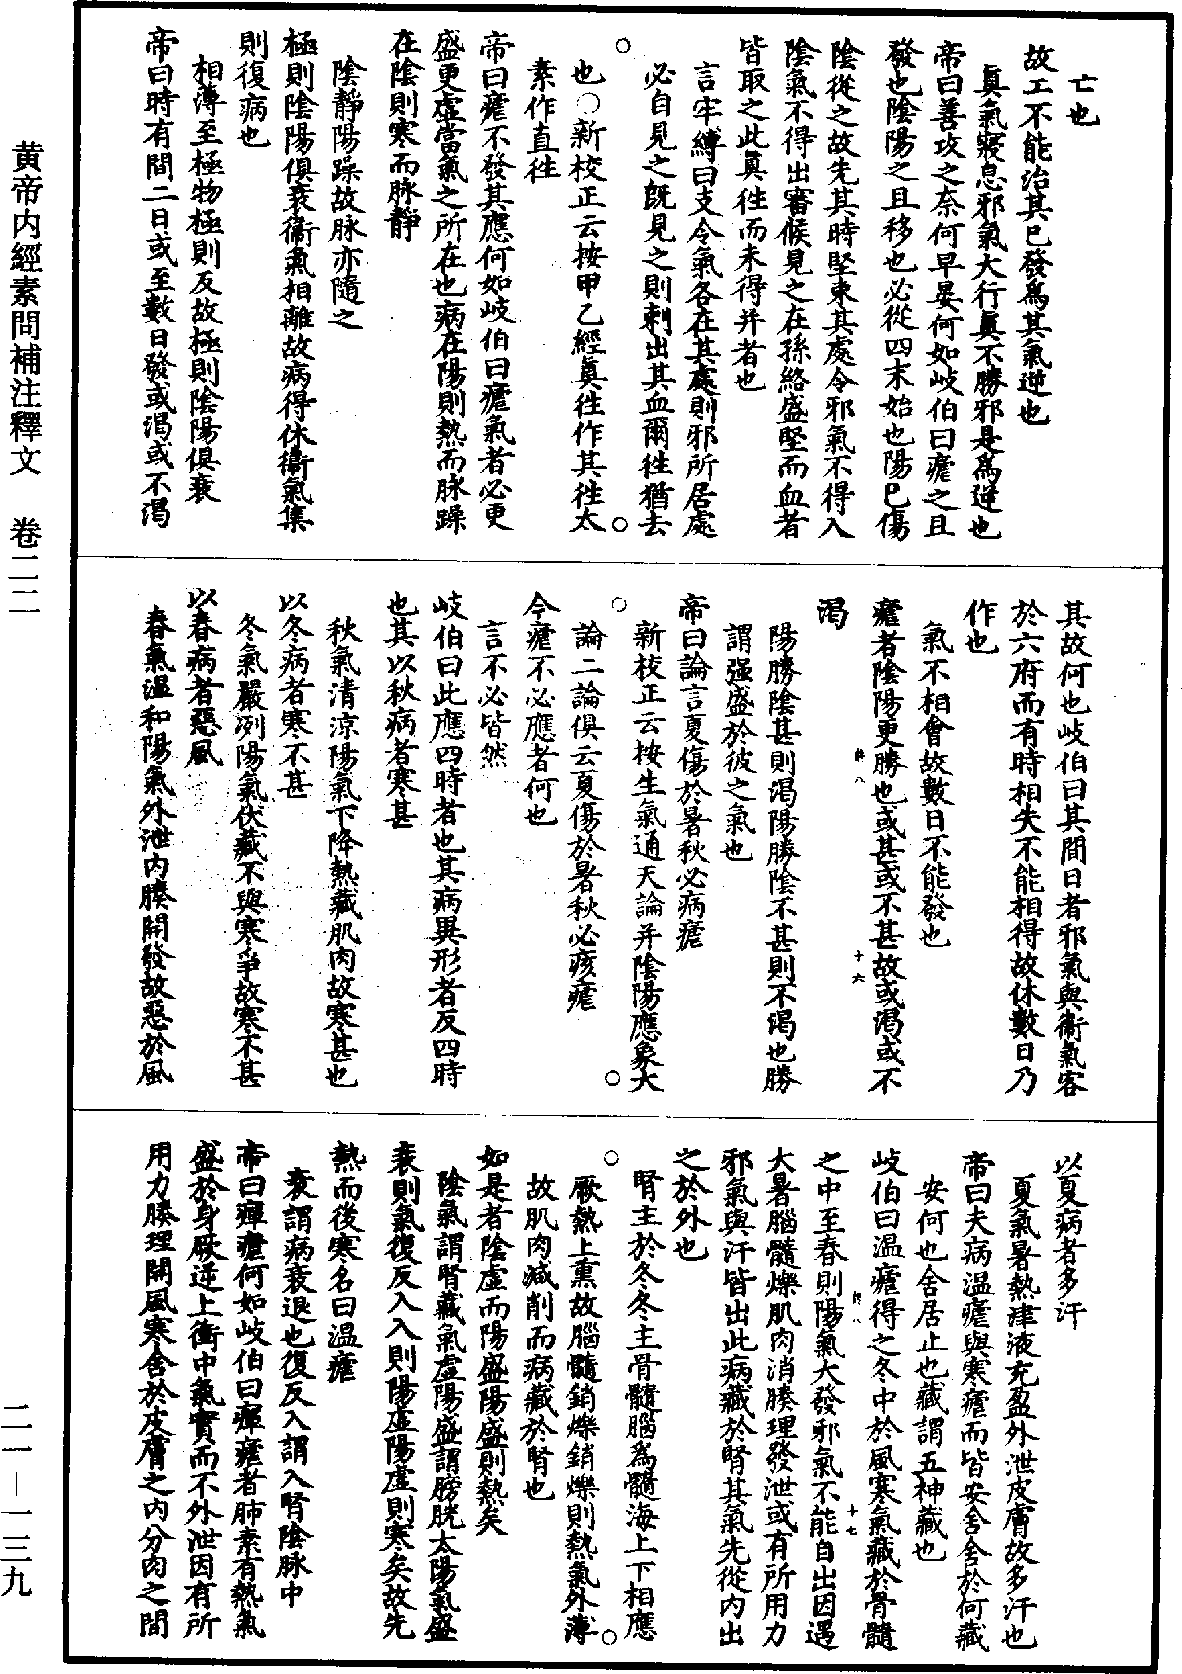 黃帝内經素問補注釋文　卷二二
亡也
故工不能治其已發爲其氣逆也
真氣寢息邪氣大行真不勝邪是爲逆也
帝曰善攻之奈何早晏何如岐伯曰瘧之且
發也陰陽之且移也必從四末始也陽已傷
陰從之故先其時堅束其處令邪氣不得入
陰氣不得出審候見之在孫絡盛堅而血者
皆取之此真往而未得并者也
言牢縛曰支令氣各在其處則邪所居處
必自見之既見之則刺出其血爾往猶去
也○新校正云按甲乙經真往作其往太
素作直往
帝曰瘧不發其應何如岐伯曰瘧氣者必更
盛更虛當氣之所在也病在陽則熱而脉躁
在陰則寒而脉靜
陰靜陽躁故脉亦隨之
極則陰陽俱衰衞氣相離故病得休衞氣集
則復病也
相薄至極物極則反故極則陰陽俱衰
帝曰時有間二日或至數日發或渴或不渴
其故何也岐伯曰其間日者邪氣與衞氣客
於六府而有時相失不能相得故休數日乃
作也
氣不相會故數日不能發也
瘧者陰陽更勝也或甚或不甚故或渴或不
渴
陽勝陰甚則渴陽勝陰不甚則不渴也勝
謂强盛於彼之氣也
帝曰論言夏傷於暑秋必病瘧
新校正云按生氣通天論并陰陽應象大
論二論俱云夏傷於暑秋必痎瘧
今瘧不必應者何也
言不必皆然
岐伯曰此應四時者也其病異形者反四時
也其以秋病者寒甚
秋氣清涼陽氣下降熱藏肌肉故寒甚也
以冬病者寒不甚
冬氣嚴冽陽氣伏藏不與寒爭故寒不甚
以春病者惡風
春氣温和陽氣外泄内腠開發故惡於風
以夏病者多汗
夏氣暑熱津液充盈外泄皮膚故多汗也
帝曰夫病温瘧與寒瘧而皆安舍舍於何藏
安何也舍居止也藏謂五神藏也
岐伯曰温瘧得之冬中於風寒氣藏於骨髓
之中至春則陽氣大發邪氣不能自出因遇
大暑腦髓爍肌肉消腠理發泄或有所用力
邪氣與汗皆出此病藏於腎其氣先從内出
之於外也
腎主於冬冬主骨髓腦爲髓海上下相應
厥熱上熏故腦髓銷爍銷爍則熱氣外薄
故肌肉減削而病藏於腎也
如是者陰虛而陽盛陽盛則熱矣
陰氣謂腎藏氣虛陽盛謂膀胱太陽氣盛
衰則氣復反入入則陽虛陽虛則寒矣故先
熱而後寒名曰温瘧
衰謂病衰退也復反入謂入腎陰脉中
帝曰癉瘧何如岐伯曰癉瘧者肺素有熱氣
盛於身厥逆上衝中氣實而不外泄因有所
用力腠理開風寒舍於皮膚之内分肉之間
二一—一三九